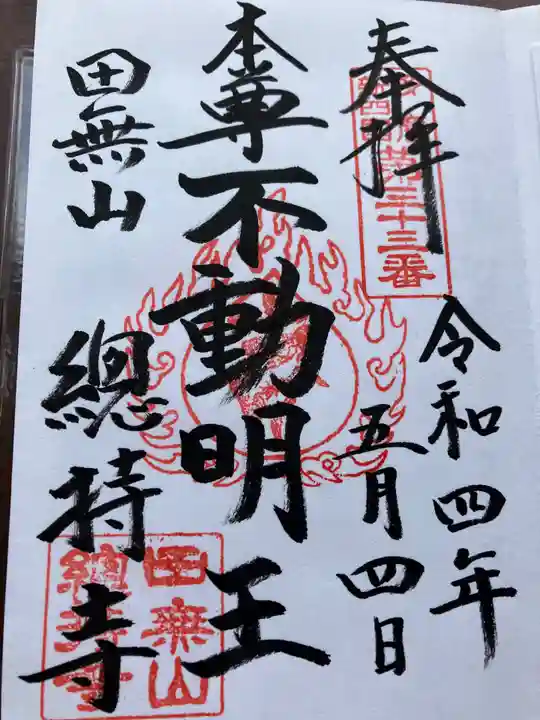 奉拝
第三十三番
令和四年
五月四日
本尊不動明王
田無山
總持寺
田無山
總持寺